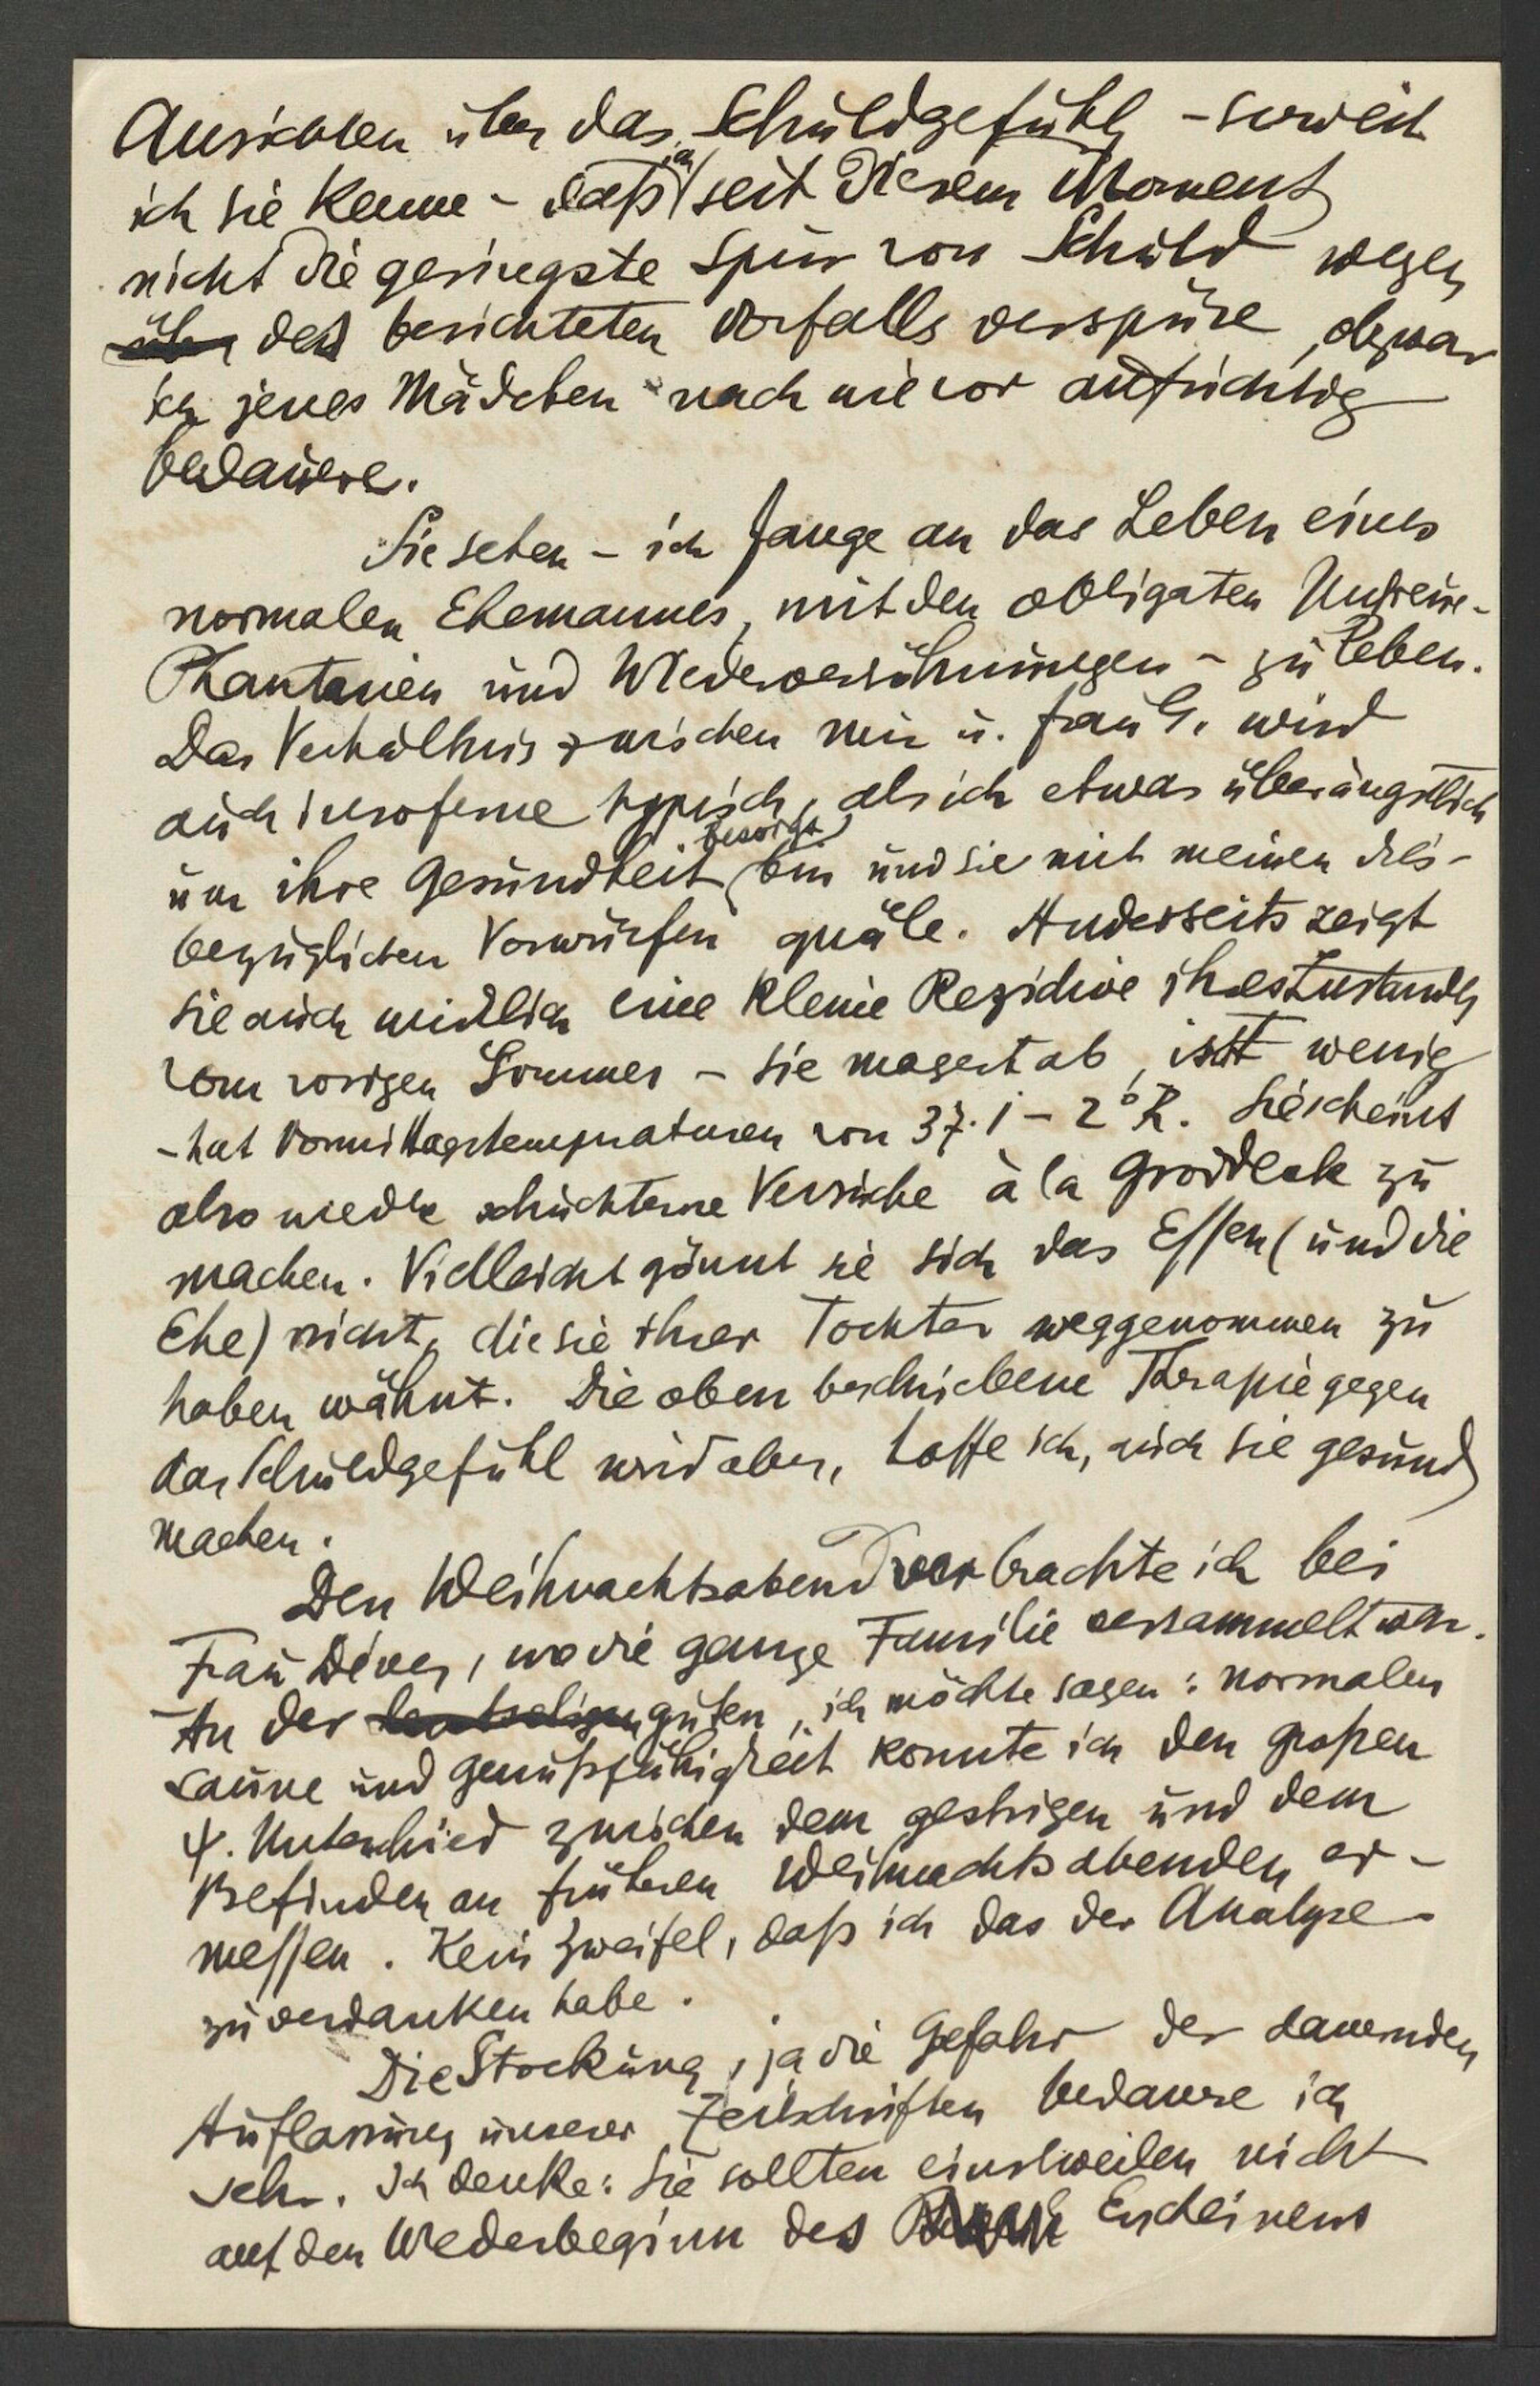 Ansichten über das Schuldgefühl – soweit
ich sie kenne – daß ich seit diesem Moment
nicht die geringste Spur von Schuld wegen
über des berichteten Vorfalls verspüre, obzwar
ich jenes Mädchen nach wie vor aufrichtig
bedauere.
Sie sehen – ich fange an das Leben eines
normalen Ehemannes, mit den obligaten Untreue-
Phantasien und Wiederversöhnungen – zu leben.
Das Verhältnis zwischen mir u. Frau G. wird
auch insoferne typisch, als ich etwas überängstlich
um ihre Gesundheit besorgt bin und sie mit meinen dies-
bezüglichen Vorwürfen quäle. Anderseits zeigt
sie auch wirklich eine kleine Rezidive ihres Zustandes
vom vorigen Sommer – sie magert ab, isst wenig
– hat Vormittagstemperaturen von 37.1 – 2° R. Sie scheint
also wieder schüchterne Versuche à la Groddeck zu
machen. Vielleicht gönnt sie sich das Essen (und die
Ehe) nicht, die sie ihrer Tochter weggenommen zu
haben wähnt. Die oben beschriebene Therapie gegen
das Schuldgefühl wird aber, hoffe ich, auch sie gesund
machen.
Den Weihnachtsabend verbrachte ich bei
Frau Dénes, wo die ganze Familie versammelt war.
An der guten, ich möchte sagen: normalen
Laune und Genußfähigkeit konnte ich den großen
ψ. Unterschied zwischen dem gestrigen und dem
Befinden an früheren Weihnachtsabenden er-
messen. Kein Zweifel, daß ich das der Analyse
zu verdanken habe.
Die Stockung, ja die Gefahr der dauernden
Auflassung unserer Zeitschriften bedaure ich
sehr. Ich denke: Sie sollten einstweilen nicht
auf den Wiederbeginn des Erscheinens